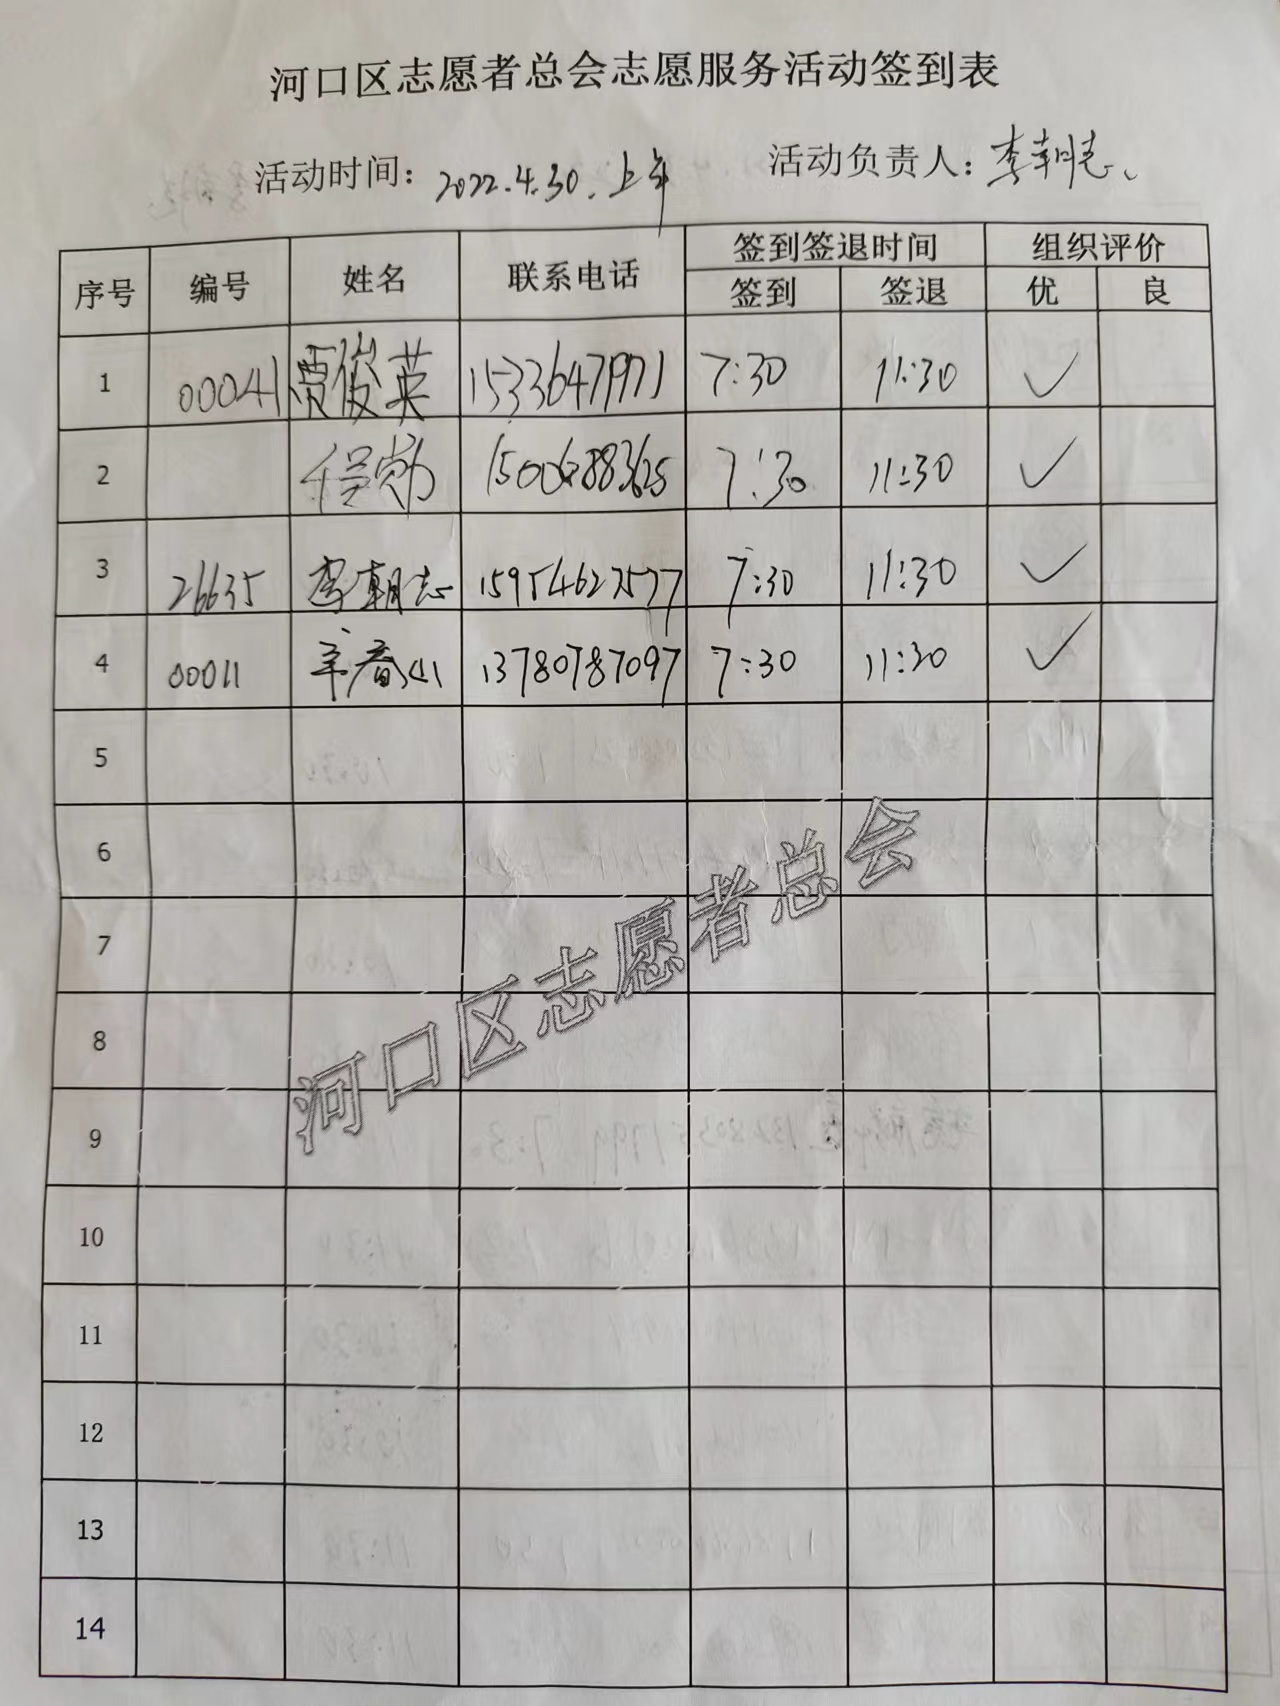 河口区志愿者总会志愿服务活动签到表
活动时间：2022.4.30.上午 活动负责人：李朝志、
序号 编号 姓名 联系电话 签到签退时间 组织评价
签到 签退 优 良
1 00041 贾俊英 15336471971 7:30 11:30 ✓
2 7:30 11:30 ✓
3 26635 李朝志 15954627577 7:30 11:30 ✓
4 00011 辛春山 13780787097 7:30 11:30 ✓
5
6
7
8
9
10
11
12
13
14
河口区志愿者总会